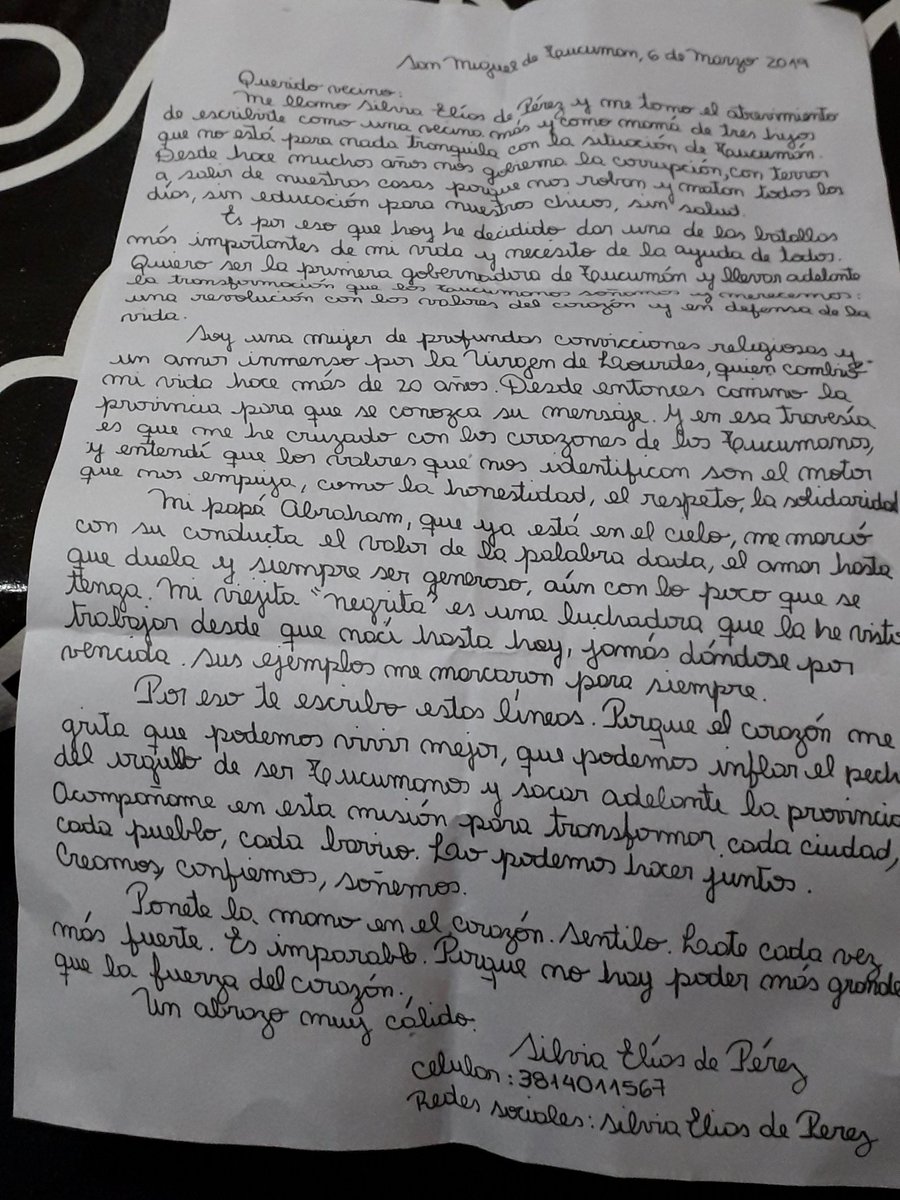 San Miguel de Tucumán, 6 de Marzo 2019
Querido vecino:
Me llamo Silvia Elías de Pérez y me tomo el atrevimiento
de escribirte como una vecina más y como mamá de tres hijos
que no está para nada tranquila con la situación de Tucumán.
Desde hace muchos años nos gobierna la corrupción, con terror
a salir de nuestras casas porque nos roban y matan todos los
días, sin educación para nuestros chicos, sin salud.
Es por eso que hoy he decidido dar una de las batallas
más importantes de mi vida y necesito de la ayuda de todos.
Quiero ser la primera gobernadora de Tucumán y llevar adelante
la transformación que los tucumanos soñamos y merecemos:
una revolución con los valores del corazón y en defensa de la
vida.
Soy una mujer de profundas convicciones religiosas y
un amor inmenso por la Virgen de Lourdes, quien cambió
mi vida hace más de 20 años. Desde entonces camino la
provincia para que se conozca su mensaje. Y en esa travesía
es que me he cruzado con los corazones de los Tucumanos,
y entendí que los valores que nos identifican son el motor
que nos empuja, como la honestidad, el respeto, la solidaridad
Mi papá Abraham, que ya está en el cielo, me marcó
con su conducta el valor de la palabra dada, el amar hasta
que duela y siempre ser generoso, aún con lo poco que se
tenga. Mi viejita "negrita" es una luchadora que la he visto
trabajar desde que nací hasta hoy, jamás dándose por
vencida. Sus ejemplos me marcaron para siempre.
Por eso te escribo estas líneas. Porque el corazón me
grita que podemos vivir mejor, que podemos inflar el pech
del orgullo de ser Tucumanos y sacar adelante la provincia
Acompañame en esta misión para transformar cada ciudad,
cada pueblo, cada barrio. Lao podemos hacer juntos.
Creamos, confiemos, soñemos.
Ponete la mano en el corazón. Sentilo. Late cada vez
más fuerte. Es imparable. Porque no hay poder más grande
que la fuerza del corazón.
Un abrazo muy cálido.
Silvia Elías de Pérez
Celular: 3814011567
Redes sociales: Silvia Elias de Perez